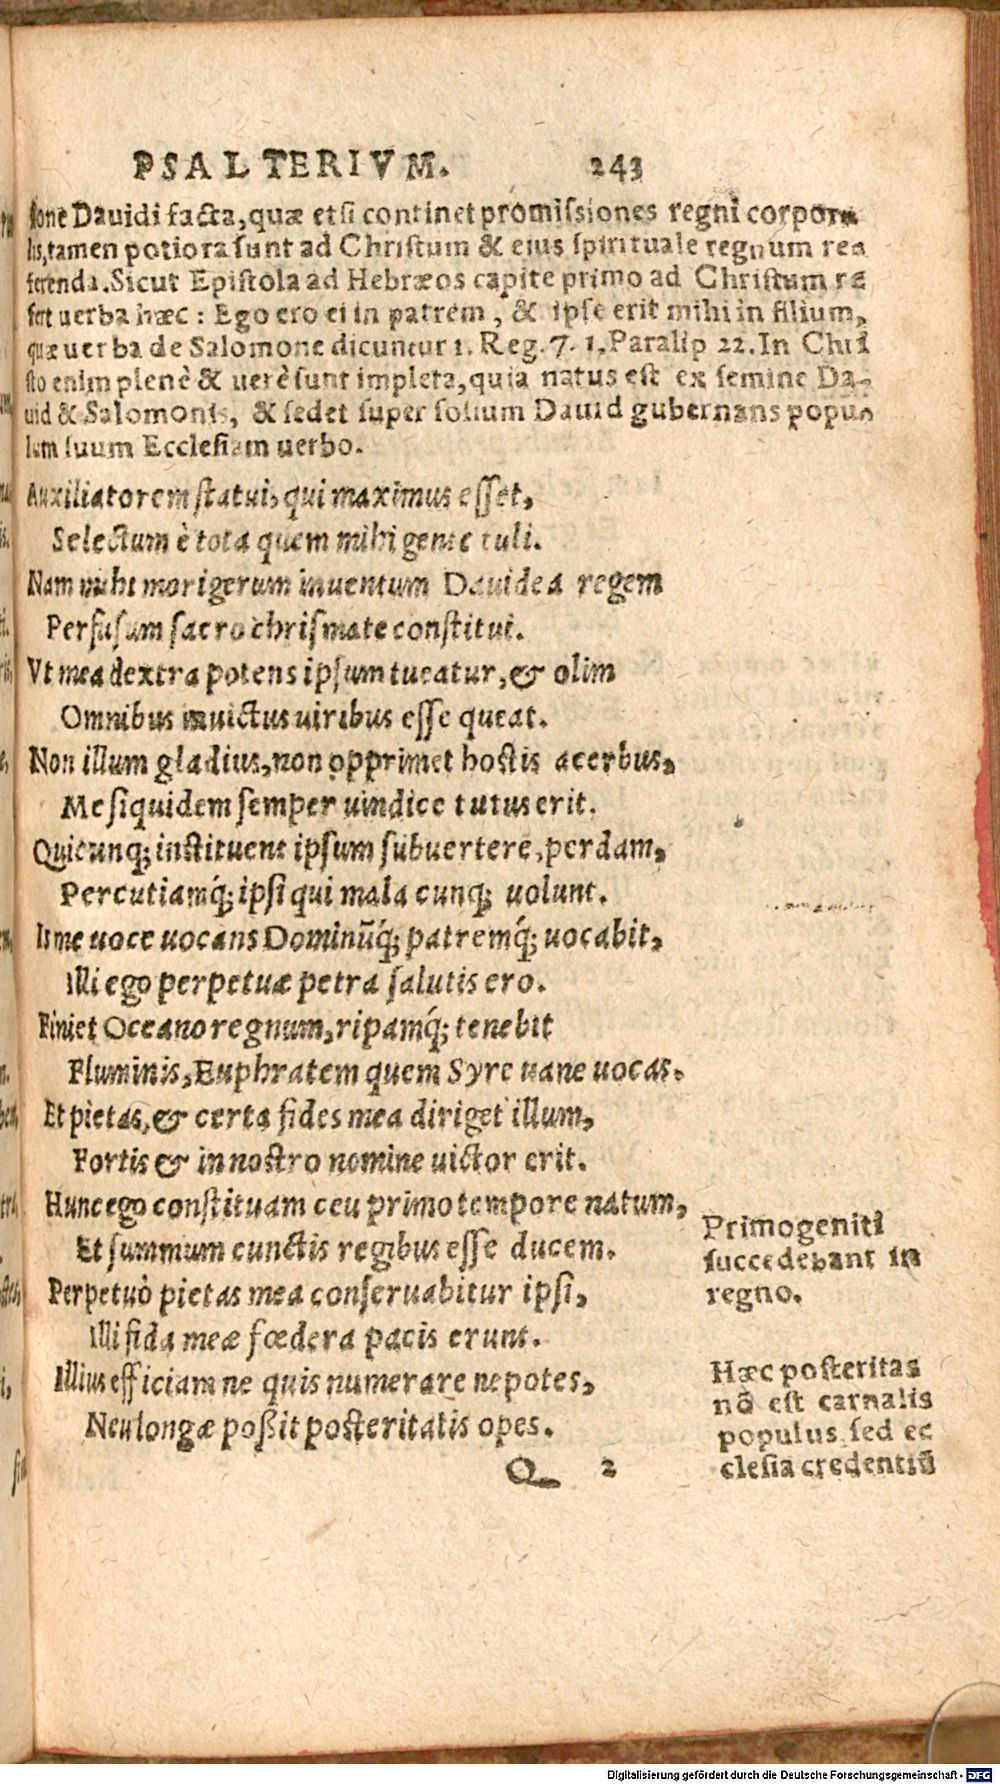 PSALTERIVM. 243
sione Dauidi facta, quæ etsi continet promissiones regni corpora
lis, tamen potiora sunt ad Christum & eius spirituale regnum re-
ferenda. Sicut Epistola ad Hebræos capite primo ad Christum re
fert uerba hæc: Ego ero ei in patrem, & ipse erit mihi in filium,
quæ uerba de Salomone dicuntur 1. Reg. 7. 1. Paralip 22. In Chri
sto enim plenè & uerè sunt impleta, quia natus est ex semine Da-
uid & Salomonis, & sedet super solium Dauid gubernans popu-
lum suum Ecclesiam uerbo.
Auxiliatorem statui, qui maximus esset,
Selectum è tota quem mihi gente tuli.
Nam mihi morigerum inuentum Dauidea regem
Perfusum sacro chrismate constitui.
Vt mea dextra potens ipsum tueatur, & olim
Omnibus inuictus uiribus esse queat.
Non illum gladius, non opprimet hostis acerbus,
Me siquidem semper uindice tutus erit.
Quicunq; instituent ipsum subuertere, perdam,
Percutiamq́; ipsi qui mala cunq; uolunt.
Is me uoce uocans Dominũq́; patremq́; uocabit,
Illi ego perpetuæ petra salutis ero.
Finiet Oceano regnum, ripamq́; tenebit
Fluminis, Euphratem quem Syre uane uocas.
Et pietas, & certa fides mea diriget illum,
Fortis & in nostro nomine uictor erit.
Hunc ego constituam ceu primo tempore natum,
Et summum cunctis regibus esse ducem.
Primogeniti
succedebant in
regno.
Perpetuò pietas mea conseruabitur ipsi,
Illi fida meæ fœdera pacis erunt.
Illius efficiam ne quis numerare nepotes,
Neu longæ poßit posteritatis opes.
Hæc posteritas
nõ est carnalis
populus sed ec
clesia credentiũ
Q 2
Digitalisierung gefördert durch die Deutsche Forschungsgemeinschaft - DFG